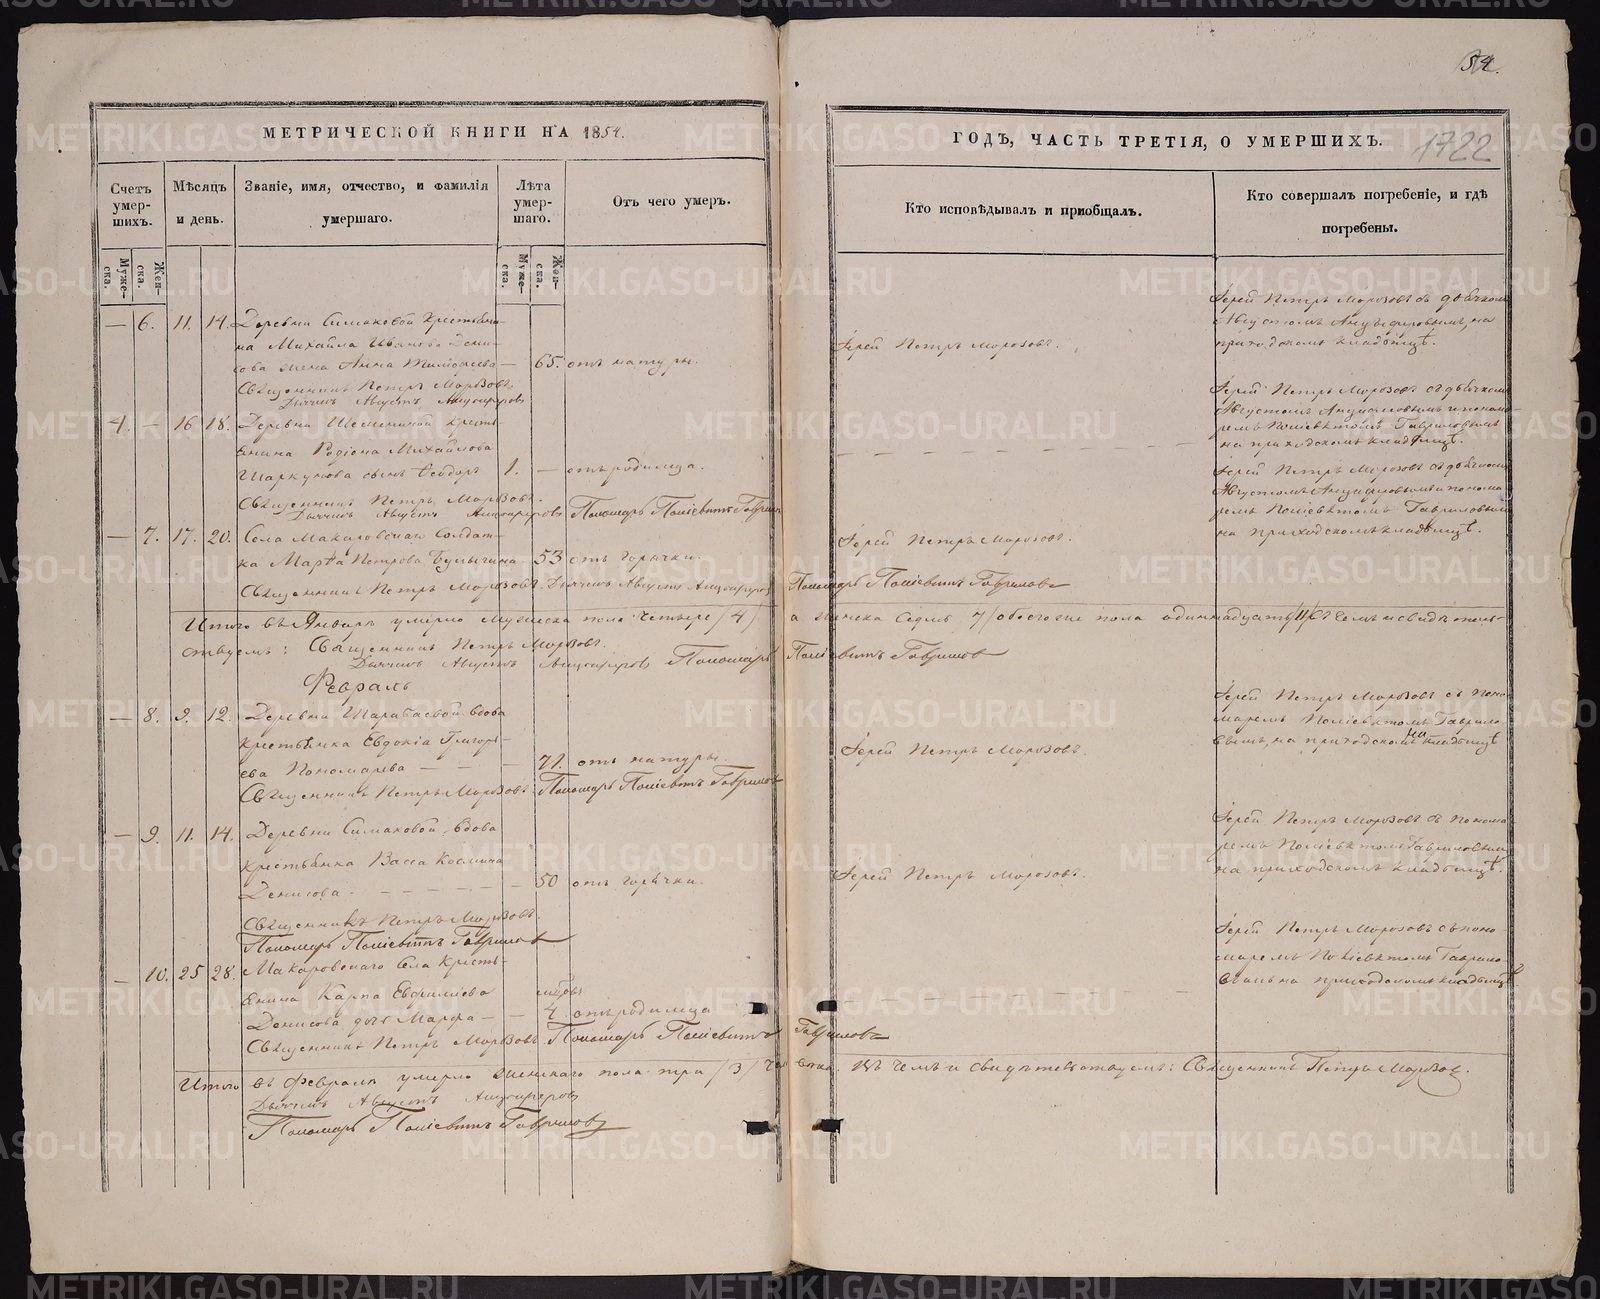 54.
1722
МЕТРИЧЕСКОЙ КНИГИ НА 1854.
ГОДЪ, ЧАСТЬ ТРЕТІЯ, О УМЕРШИХЪ.
Счетъ умер-шихъ.
Мѣсяцъ и день.
Званіе, имя, отчество, и фамилія умершаго.
Лѣта умер-шаго.
Отъ чего умеръ.
Кто исповѣдывалъ и пріобщалъ.
Кто совершалъ погребеніе, и гдѣ погребены.
Муже-ска.
Жен-ска.
Муже-ска.
Жен-ска.
— 6. 11. 14. Деревни Симаковой крестьяни-
на Михайла Иванова Дени-
сова жена Анна Тимофеева — 65. отъ натуры.
Священникъ Петръ Морозовъ
Дьячекъ Августъ Анцыферовъ
Іерей Петръ Морозовъ.
Іерей Петръ Морозовъ съ дьячкомъ
Августомъ Анцыферовымъ, на
приходскомъ кладбищѣ.
4. — 16 18. Деревни крестья-
нина Родіона Михайлова
Шаркунова сынъ Ѳеодоръ 1. — отъ родимца.
Священникъ Петръ Морозовъ.
Дьячекъ Августъ Анцыферовъ Пономарь Поліевктъ Гавриловъ
Іерей Петръ Морозовъ съ дьячкомъ
Августомъ Анцыферовымъ и понома-
ремъ Поліевктомъ Гавриловымъ
на приходскомъ кладбищѣ.
— 7. 17. 20. Села Макаровскаго солдат-
ка Марѳа Петрова Булычина 53 отъ горячки.
Священникъ Петръ Морозовъ. Дьячекъ Августъ Анцыферовъ Пономарь Поліевктъ Гавриловъ
Іерей Петръ Морозовъ.
Іерей Петръ Морозовъ съ дьячкомъ
Августомъ Анцыферовымъ и понома-
ремъ Поліевктомъ Гавриловымъ
на приходскомъ кладбищѣ.
Итого въ Январѣ умерло мужеска пола четыре /4/ а женска седмь 7/ обоего пола одиннадцать /11/ въ чемъ и свидѣтель-
ствуемъ: Священникъ Петръ Морозовъ.
Дьячекъ Августъ Анцыферовъ Пономарь Поліевктъ Гавриловъ
Февраль
— 8. 9. 12. Деревни вдова
крестьянка Евдокія Григорь-
ева Пономарева — — — 71. отъ натуры.
Священникъ Петръ Морозовъ. Пономарь Поліевктъ Гавриловъ
Іерей Петръ Морозовъ.
Іерей Петръ Морозовъ съ поно-
маремъ Поліевктомъ Гаврило-
вымъ, на приходскомъ кладбищѣ
— 9. 11. 14. Деревни Симаковой вдова
крестьянка Васса Космина
Денисова — — — 50 отъ горячки.
Священникъ Петръ Морозовъ.
Пономарь Поліевктъ Гавриловъ
Іерей Петръ Морозовъ.
Іерей Петръ Морозовъ съ понома-
ремъ Поліевктомъ Гавриловымъ
на приходскомъ кладбищѣ.
— 10. 25 28. Макаровскаго села кресть-
янина Карпа Евфиміева
Денисова дочь Марфа — — 4. отъ родимца
Священникъ Петръ Морозовъ. Пономарь Поліевктъ Гавриловъ
Іерей Петръ Морозовъ съ поно-
маремъ Поліевктомъ Гаврило-
вымъ на приходскомъ кладбищѣ
Итого въ Февралѣ умерло женскаго пола три /3/ человека. Въ чемъ и свидѣтельствуемъ: Священникъ Петръ Морозовъ.
Дьячекъ Августъ Анцыферовъ
Пономарь Поліевктъ Гавриловъ
METRIKI.GASO-URAL.RU